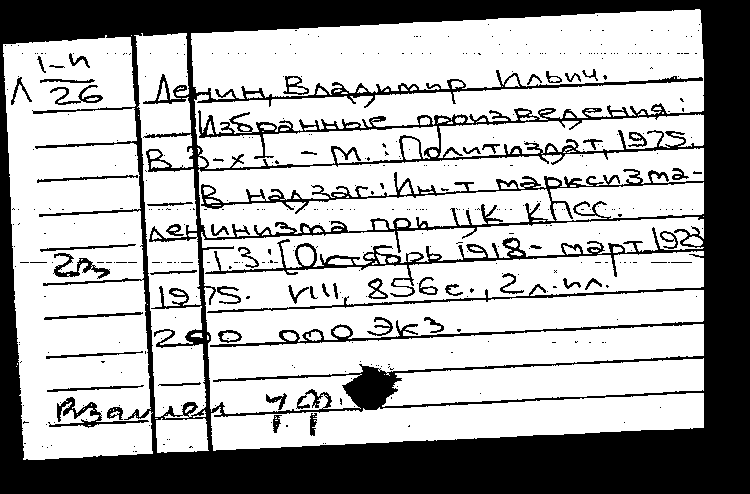 1-и
Л 26 Ленин, Владимир Ильич.
Избранные произведения:
В 3-х т. - М.: Политиздат, 1975.
В надзаг.: Ин-т марксизма-
ленинизма при ЦК КПСС.
Т.3: [Октябрь 1918- март 1923
1975. VIII, 856с., 2л.ил.
200 000 экз.